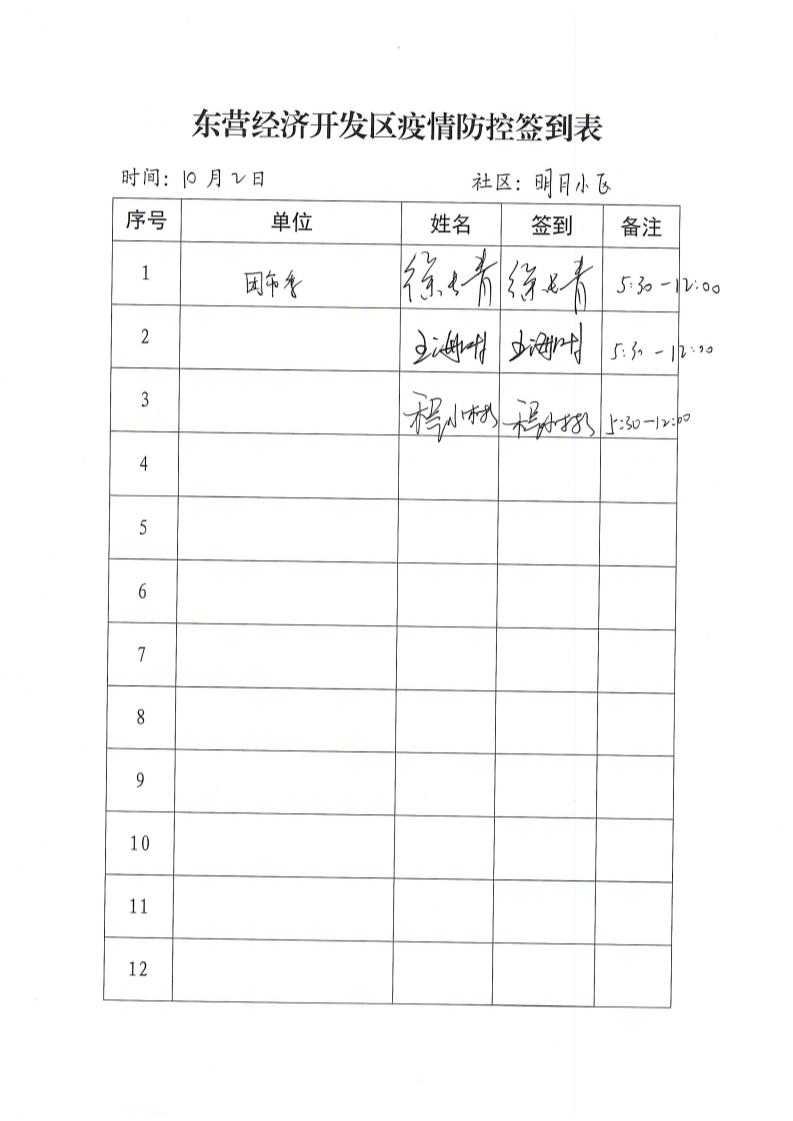 东营经济开发区疫情防控签到表
时间：10月2日 社区：明月小区
序号 单位 姓名 签到 备注
1 团市委 徐长青 徐长青 5:30-12:00
2 5:30-12:00
3 程小彬 程小彬 5:30-12:00
4
5
6
7
8
9
10
11
12